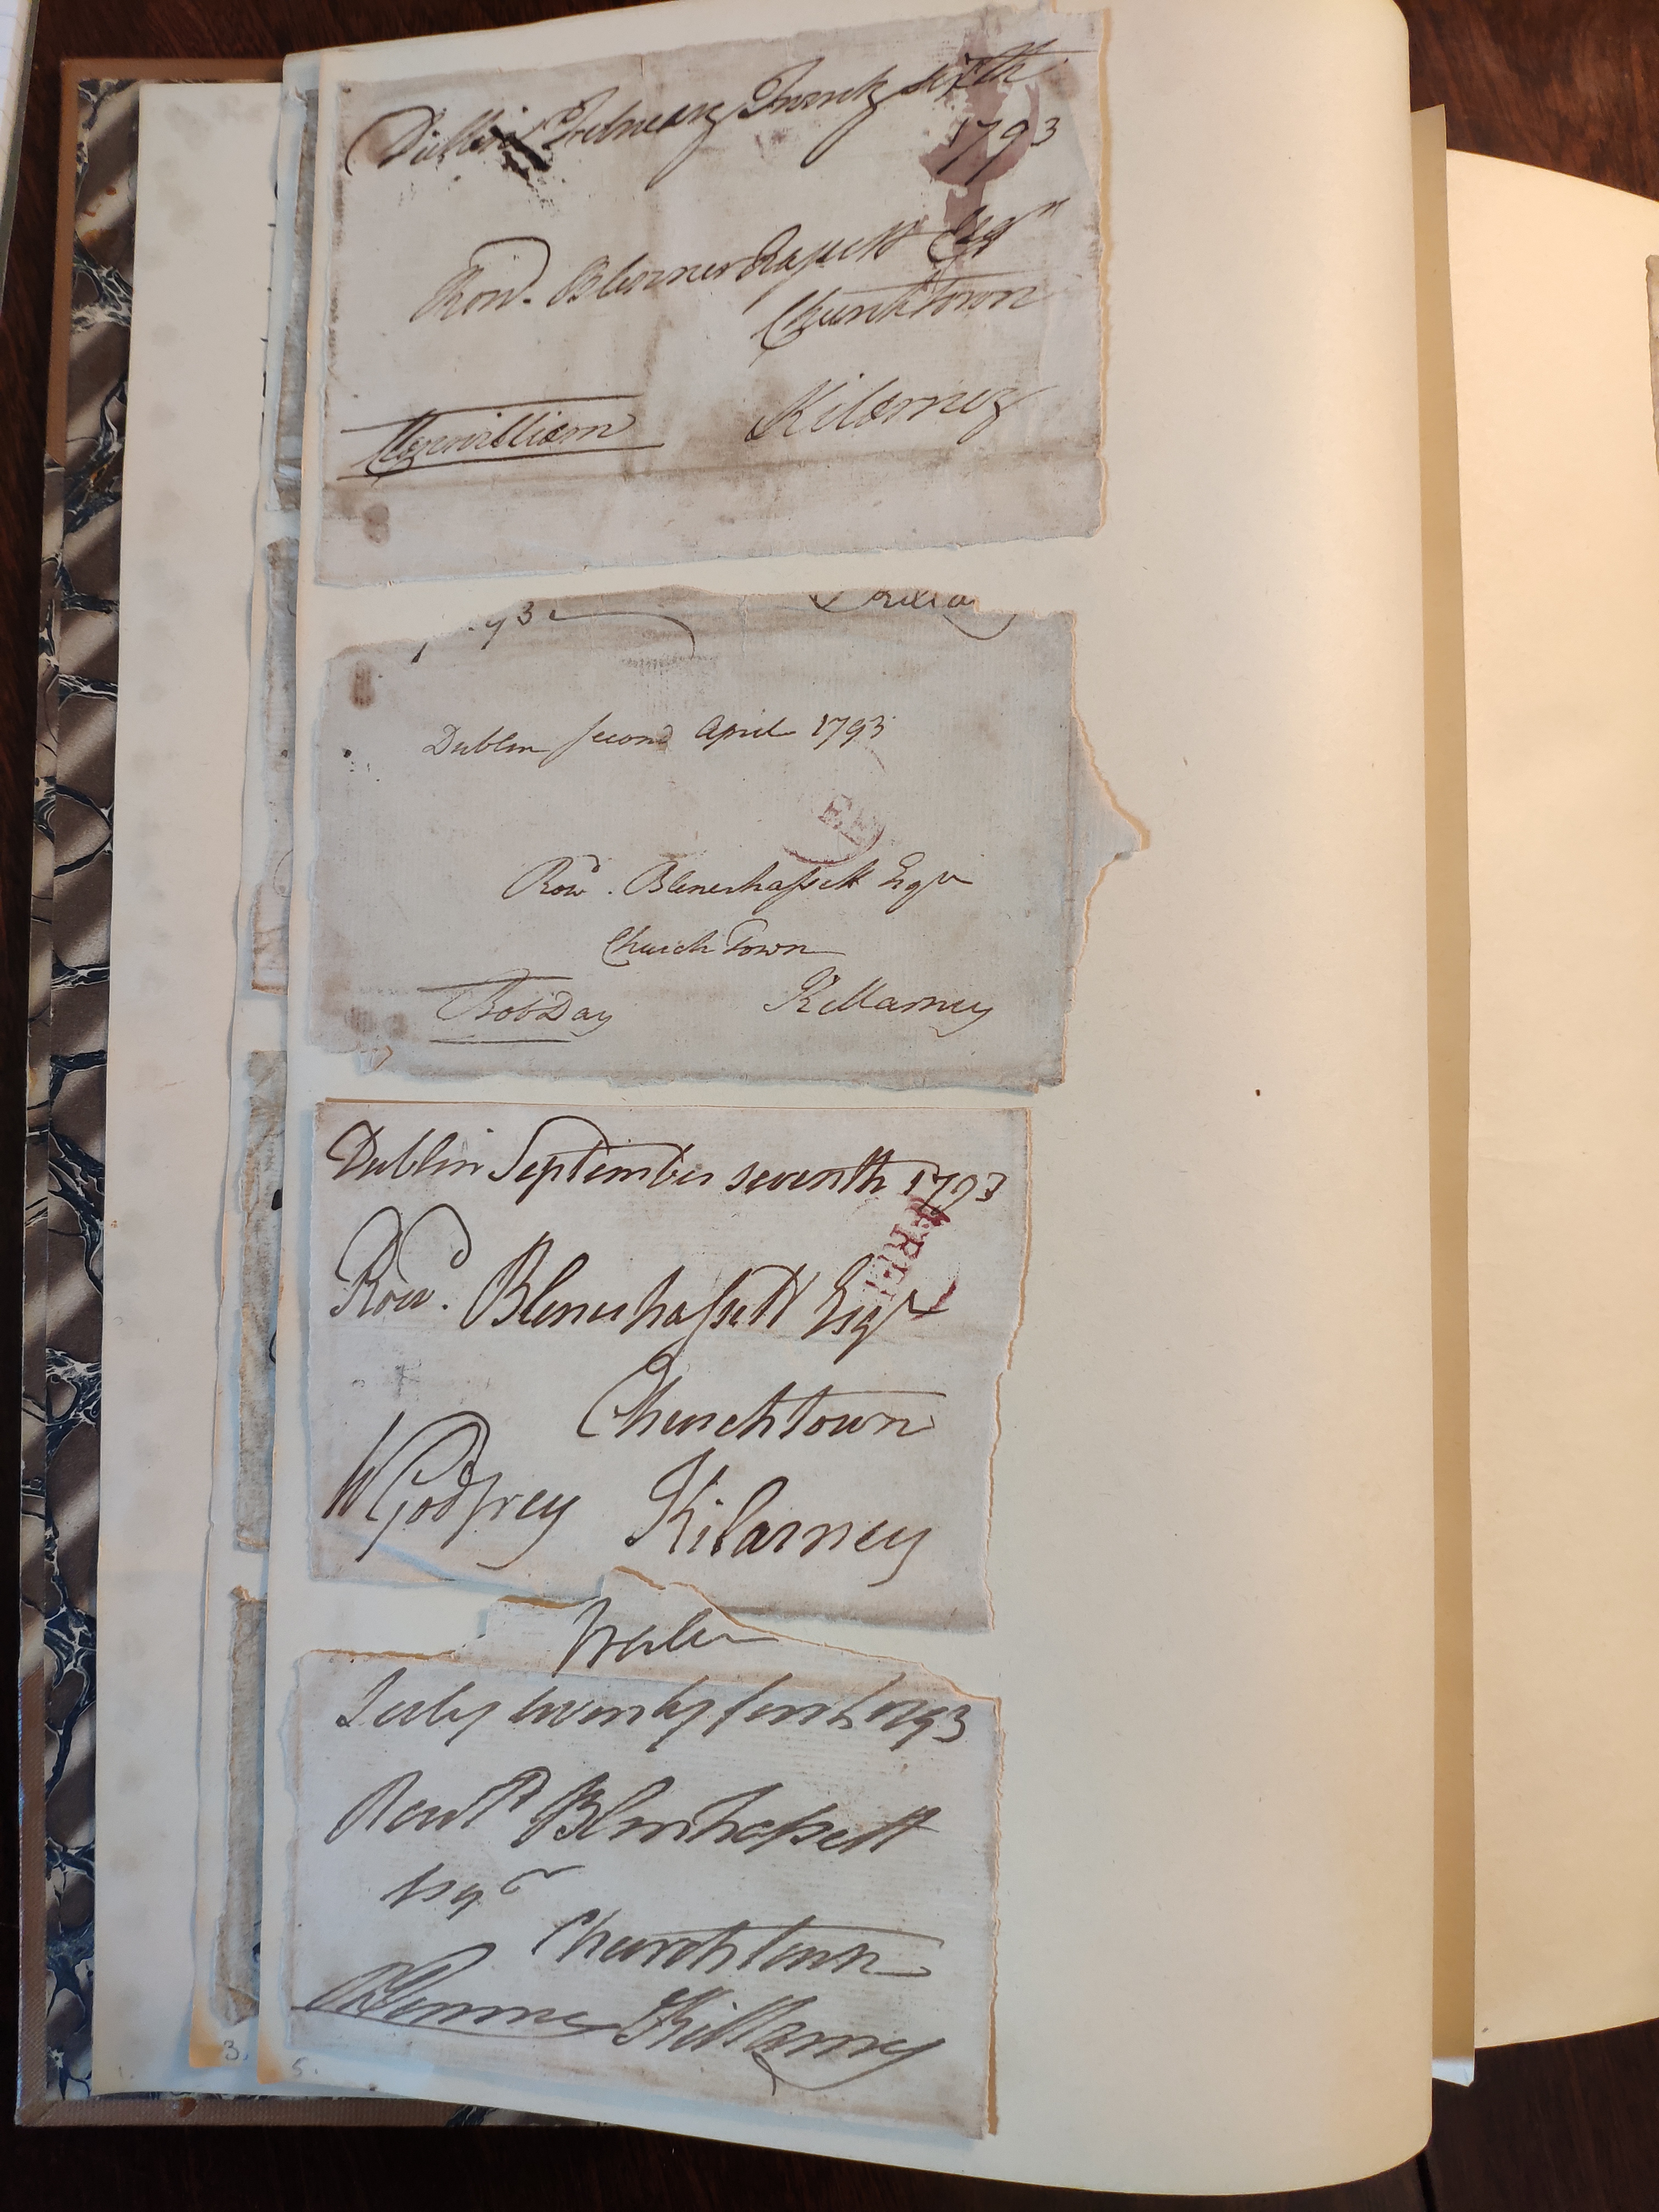 Dublin February Twenty sixth
1793
Rowd. Blennerhassett Esqr
Churchtown
Kilarney
Glenwilliam
93
Dublin second April 1793
Rowd. Blenerhassett Esqr
Church Town
RobDay
Killarney
Dublin September seventh 1793
FREE
Rowd. Blenerhassett Esqr
Churchtown
WGodfrey
Kilarney
Tralee
July twenty first 1793
Rowld Blenrhassett
Esqr
Churchtown
Killarney
3.
5.